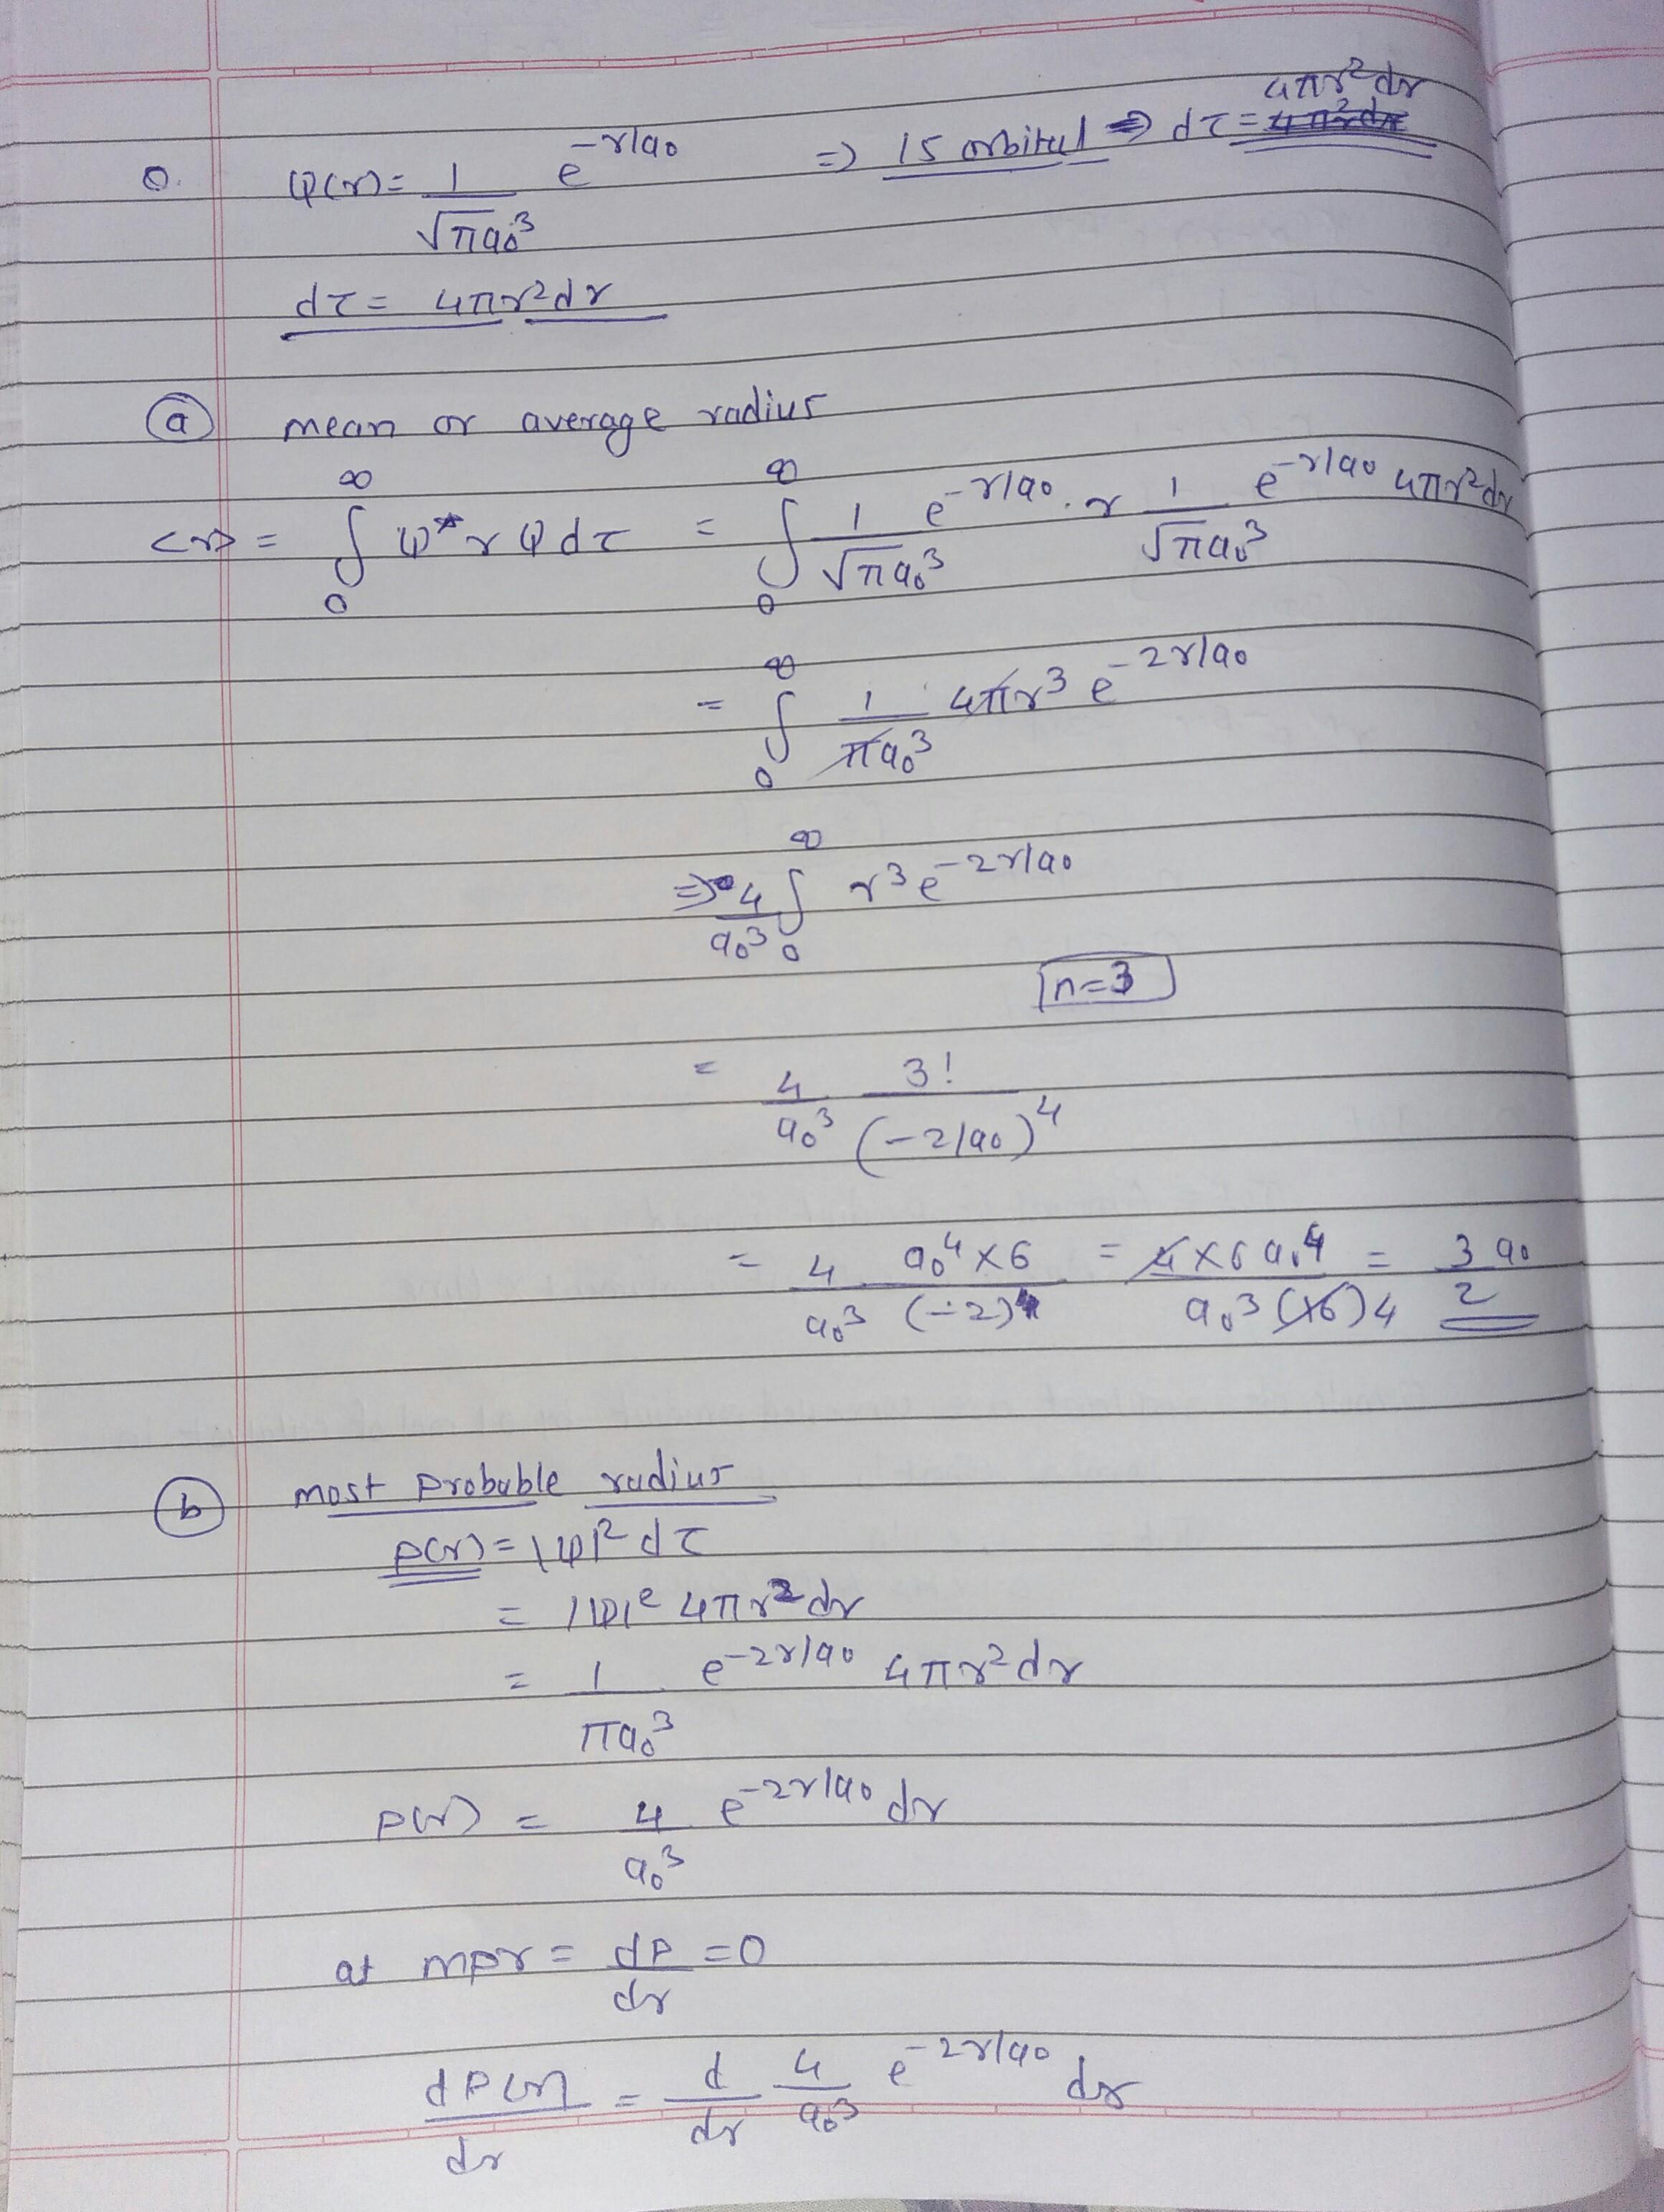 4πr²dr
Q. ψ(r) = 1/√πa₀³ e^-r/a₀ ⇒ 1S orbital ⇒ dτ =
dτ = 4πr²dr
(a) mean or average radius
<r> = ∫₀^∞ ψ* r ψ dτ = ∫₀^∞ 1/√πa₀³ e^-r/a₀ . r 1/√πa₀³ e^-r/a₀ 4πr²dr
= ∫₀^∞ 1/πa₀³ 4πr³ e^-2r/a₀
⇒ 4/a₀³ ∫₀^∞ r³ e^-2r/a₀
n=3
= 4/a₀³ 3!/(-2/a₀)⁴
= 4/a₀³ a₀⁴×6/(-2)⁴ = 4×6 a₀⁴/a₀³(16)4 = 3a₀/2
(b) most probable radius
P(r) = |ψ|² dτ
= |ψ|² 4πr²dr
= 1/πa₀³ e^-2r/a₀ 4πr²dr
P(r) = 4/a₀³ e^-2r/a₀ dr
at mpr = dP/dr = 0
dP(r)/dr = d/dr 4/a₀³ e^-2r/a₀ dr